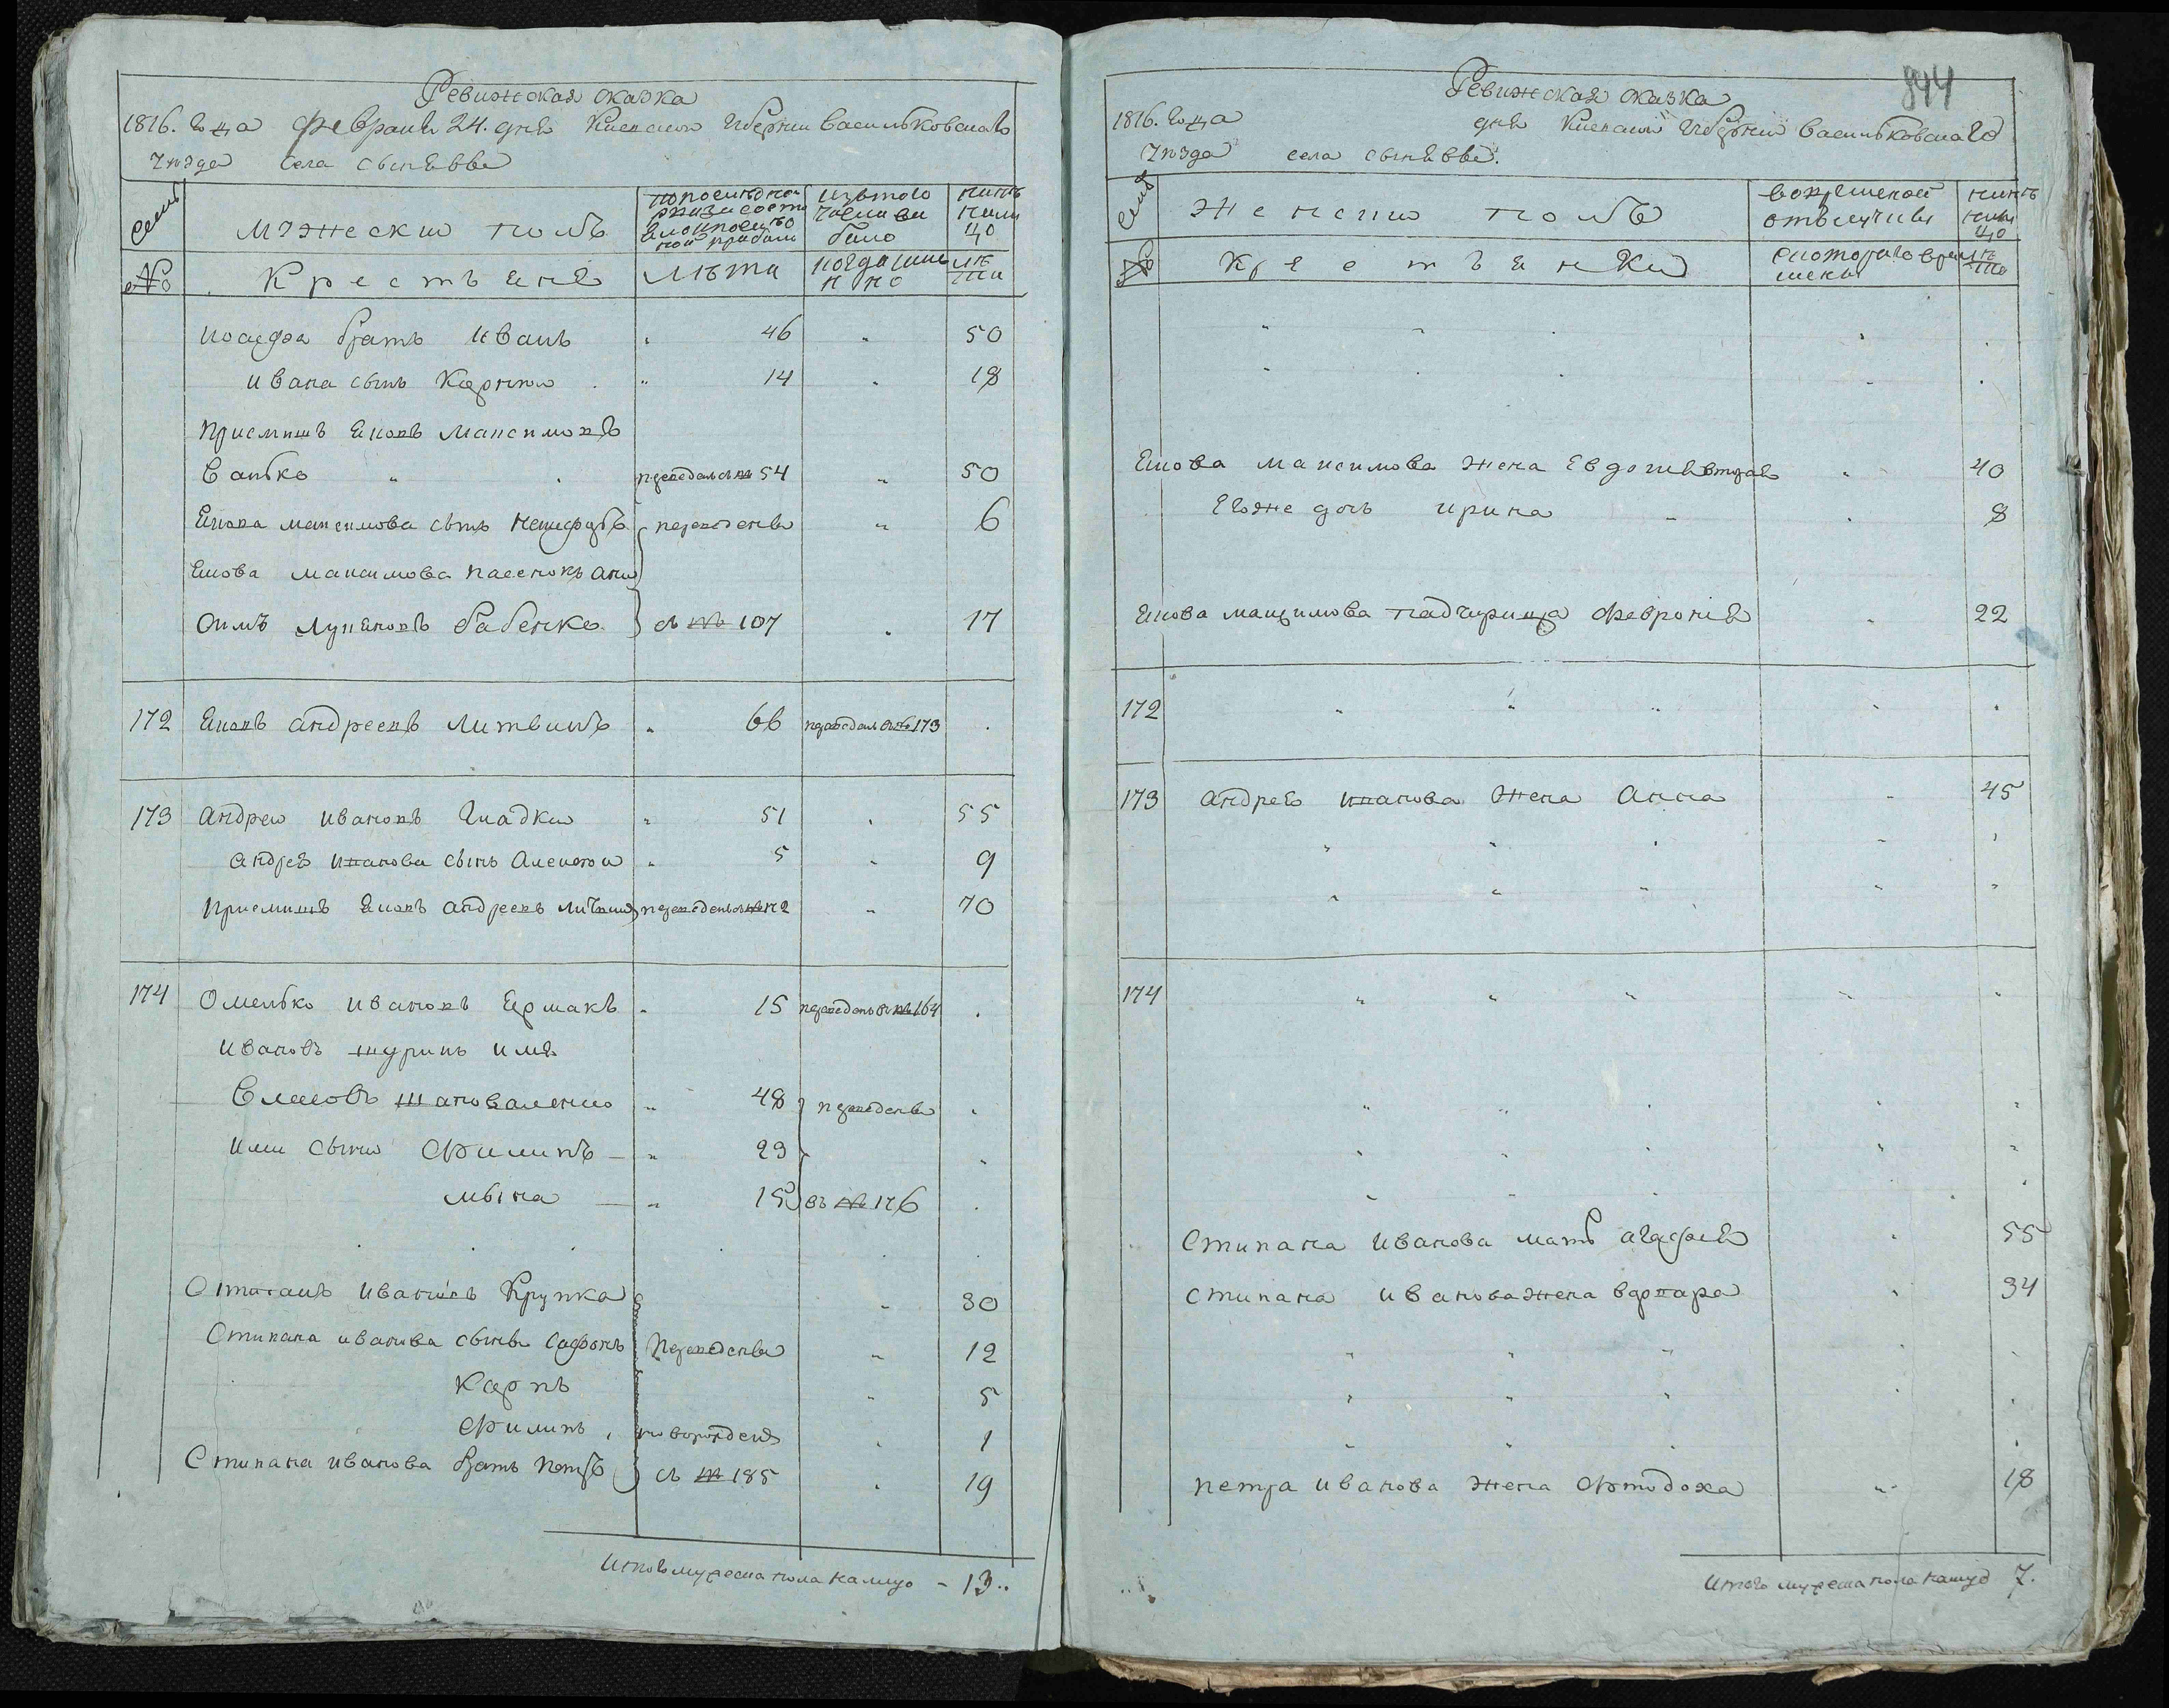 Ревижская сказка
1816. года февраля 24. дня Киевской Губернии васильковскаго
уезда села сынявы
Семьи
мужеской полъ
по последней ревизии состояло и после оной прибыло
изъ того числа вы было
ныне налицо
№
Крестьяне
лета
когда именно
лета
иосифа братъ иванъ " 46 " 50
ивана сынъ Карпъ " 14 " 18
приемышъ яковъ Максимовъ
Сапко " переведенъ съ № 54 " 50
якова максимова сынъ Никифоръ переведены " 6
якова максимова пасенокъ ани
симъ лукяновъ бабенко съ № 107 " 17
172 яковъ андреевъ литвинъ " 66 переведенъ въ № 173 .
173 андрей ивановъ гладкий " 51 " 55
андрея иванова сынъ алексей " 5 " 9
приемышъ яковъ андреевъ литвинъ переведенъ съ № 172 " 70
174 Омелько ивановъ Ермакъ " 15 переведенъ въ № 164 .
ивановъ шуринъ имя
Власовъ шаповаленко " 48 переведены .
или сыны Филипъ " 23 .
мына " 15 въ № 176 .
Степанъ ивановъ Крупка " 30
Стипана иванова сыны Сафонъ переведены " 12
Карпъ " 5
Филипъ, новорожденъ " 1
Стипана иванова братъ петръ съ № 185 " 19
Итого мужеска пола налицо - 13..
844
Ревижская сказка
1816. года дня Киевской Губернии васильковскаго
уезда села сынявы.
Семьи
Женской полъ
во временной отлучке
ныне налицо
№
Крестьянки
с котораго времени
лета
якова максимова жена Евдокия вторая " 40
Егоже дочь ирина " 8
якова максимова падчирица Феврония " 22
172 " " " " "
173 андрея иванова жена анна " 45
174 " " " " "
Стипана иванова мать агафия " 55
Стипана иванова жена варвара " 34
петра иванова жена Фтодоха " 18
Итого женска пола налицо 7.